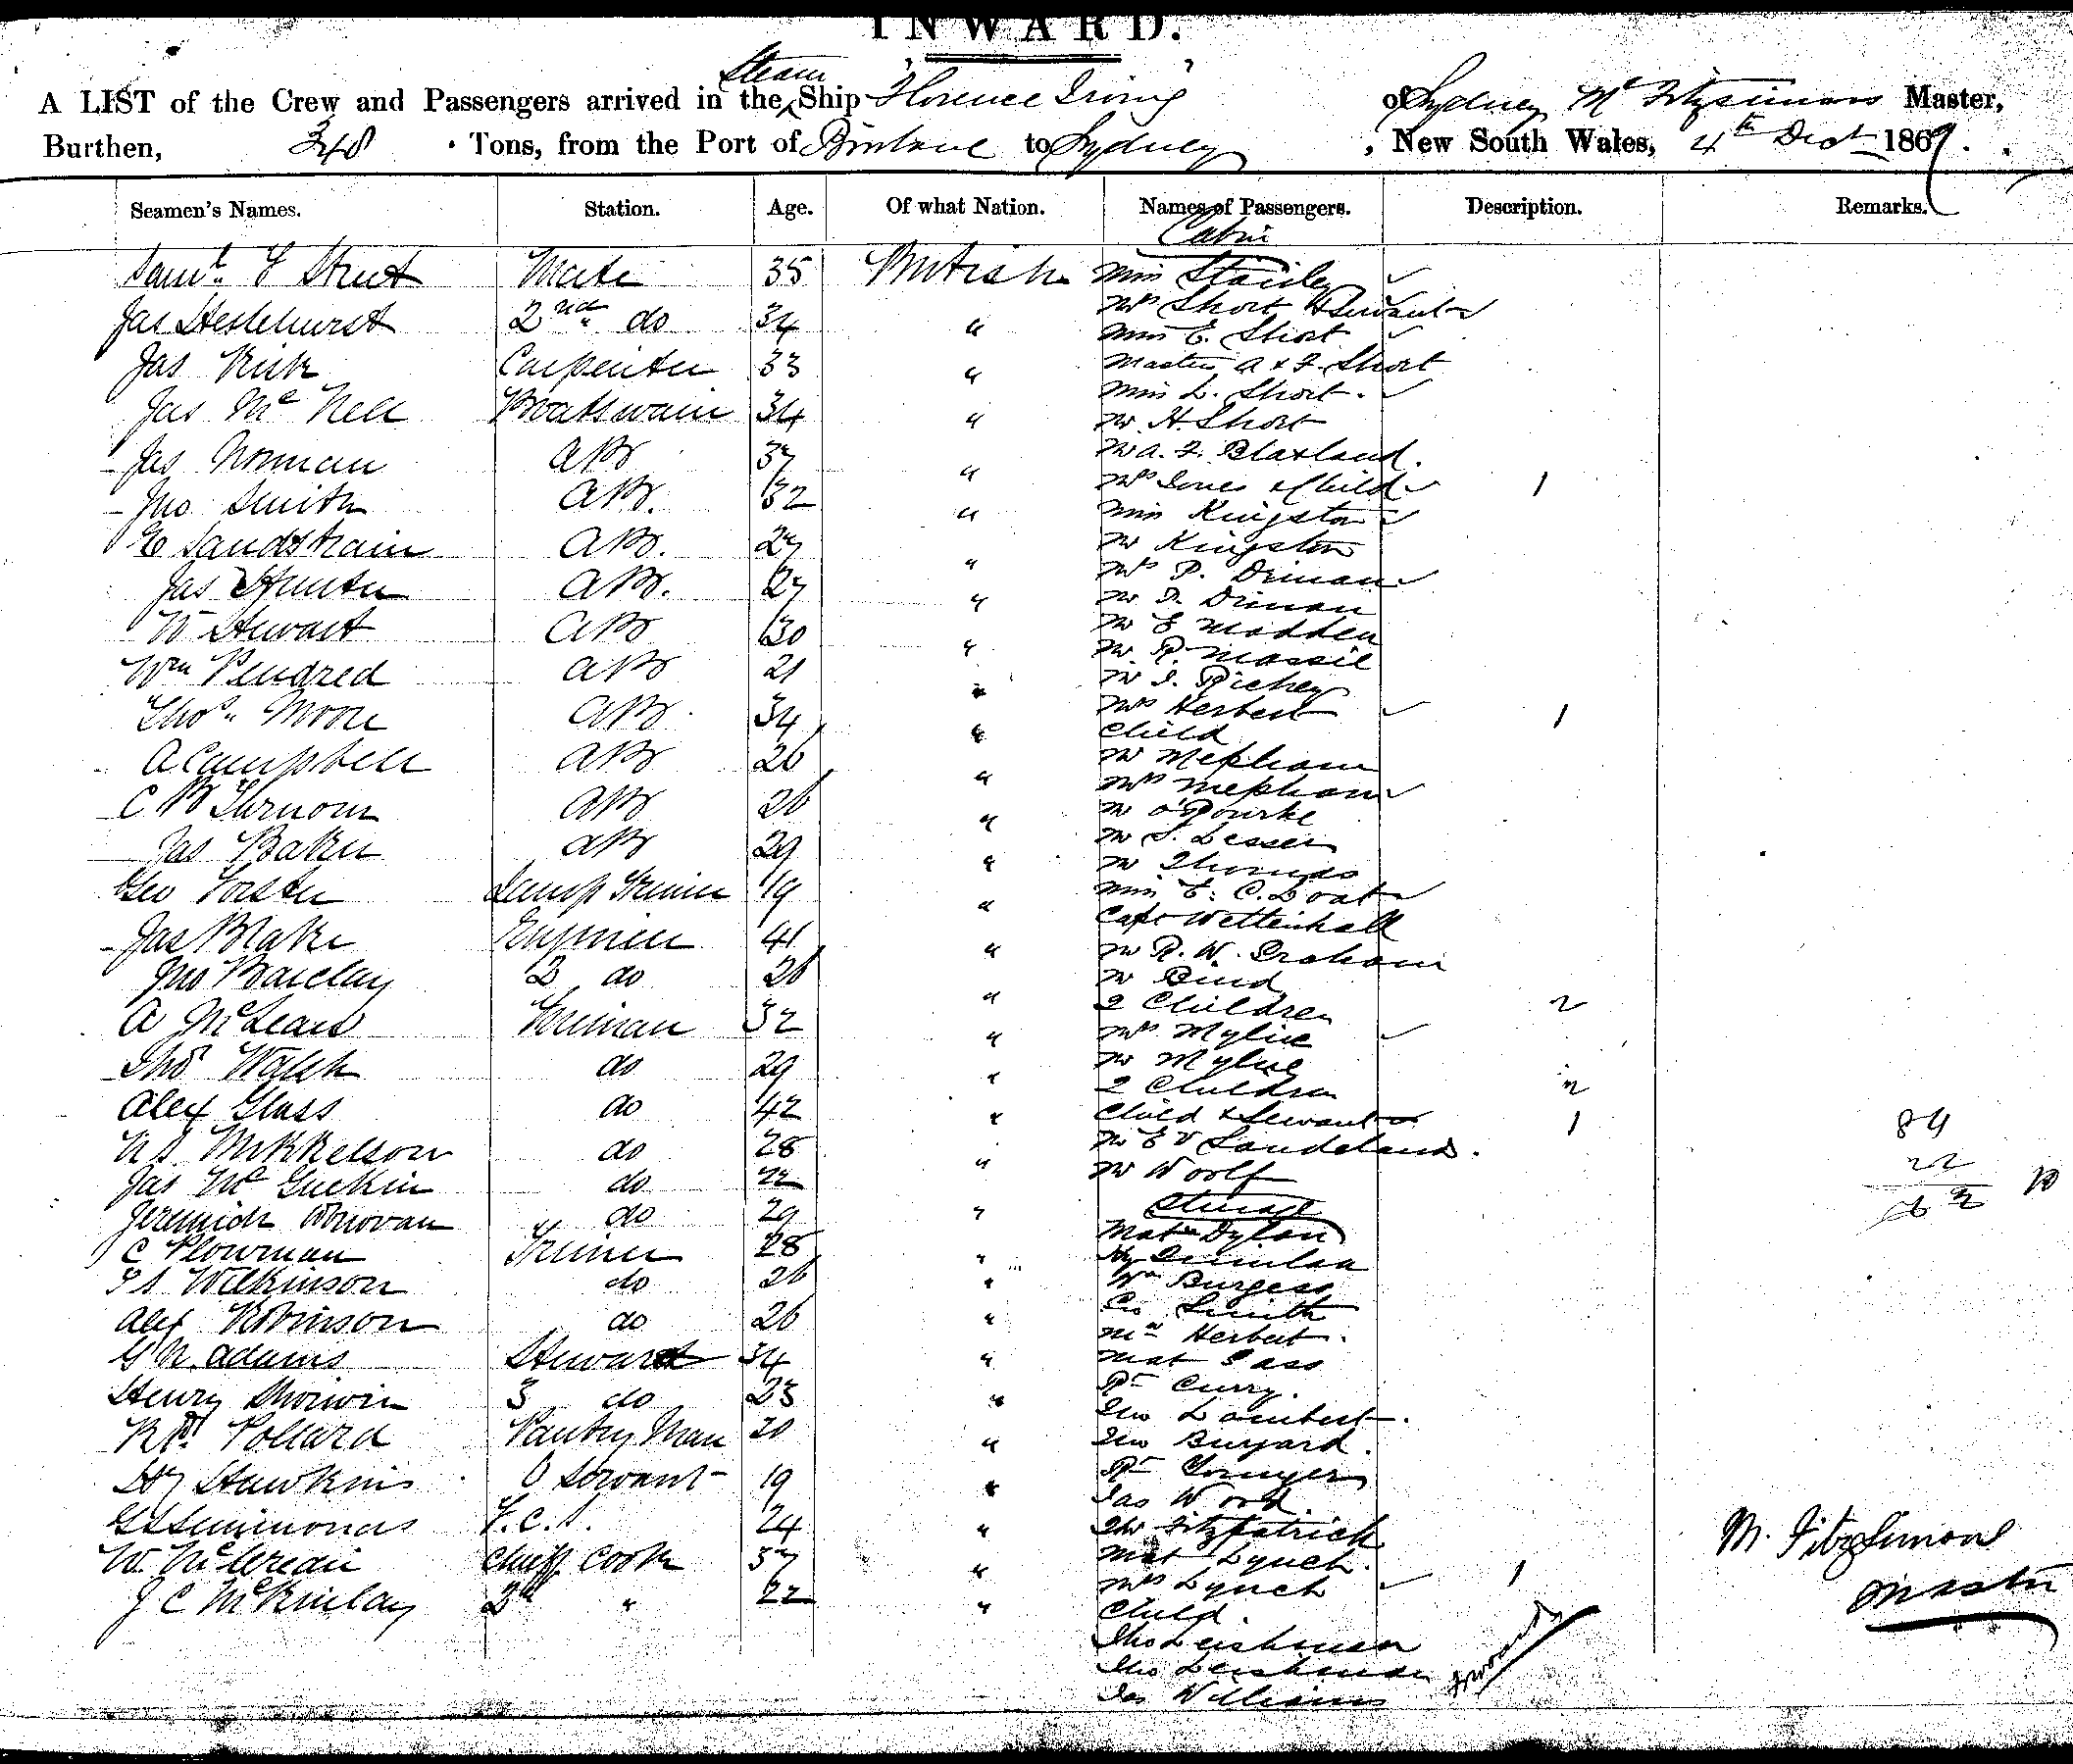 INWARD.
A LIST of the Crew and Passengers arrived in the Steam Ship "Florence Irving" of Sydney Mc Fitzsimons Master,
Burthen, 348 Tons, from the Port of Brisbane to Sydney, New South Wales, 4th Dect 1869.
Seamen's Names. Station. Age. Of what Nation. Names of Passengers. Description. Remarks.
Cabin
Saml. F Strut Mate 35 British Miss Stanley
Jas Heslehurst 2nd do 34 "
Mrs Short & Servant
Miss E. Short
Jas Kirk Carpenter 33 "
Master A & F. Short
Miss L. Short.
Jas McNell Boatswain 34 "
Mr H. Short
Jas Norman AB 37 "
Mr A. F. Blaxland.
Mrs Jones & Child 1
Jno Smith AB. 32 "
Miss Kingston
G Sandstrain AB. 27 "
Mr Kingston
Mrs P. Drinan
Jas Hunter AB. 27 "
Mr P. Drinan
W Stewart AB 30 "
Mr E Madden
Mr R. Massie
Wm Pendred AB 21 "
Mr J. Richey
Mrs Herbert 1
Thos. Moore AB 34 "
Child
A Campbell AB 26 "
Mr Mepham
Mrs Mepham
C B Turnour AB 26 "
Mr O'Rourke
Mr S. Lesser
Jas Baker AB 29 "
Mr Thomas
Geo Forster Lamp Trimer 19 "
Miss E. C. Doat
Capt Wettenhall
Jas Blake Engineer 41 "
Mr R. W. Graham
Jno Barclay 2 do 26 "
Mr Bind
2 Children 2
A McLean Foreman 32 "
Mrs Mylne
Thos Walsh do 29 "
Mr Mylne
2 Children 2
Alex Glass do 42 "
Child & Servant 1
84
N S Mikkelson do 28
Mr E V Sandeland.
22
Jas McGuckin do 22 "
Mr Woolf
62 10
Jeremiah Donovan do 29 "
Steerage
Mat Dylan
C Plowman Trimer 28 "
Hy Quinlan
J S Wilkinson do 26 "
Wm Burgess
Alex Robinson do 26 "
Geo Smith
Mrs Herbert.
G N Adams Steward 34 "
Mat Cass
Henry Shorwin 3 do 23 "
Pk Curry.
Thos Lambert.
Rd. Pollard Pantry Man 20 "
Thos Burgard.
Hy Hawkins O Servant 19 "
Jas Wood.
G Simmonds F.C.S. 24 "
Thos Fitzpatrick
M. Fitzsimons
W. McCrean Chief Cook 37 "
Mat Lynch.
Master
J C McKinlay 2d " 22 "
Mrs Lynch 1
Child.
Thos Leishman
Thos Leishman
Jas Williams